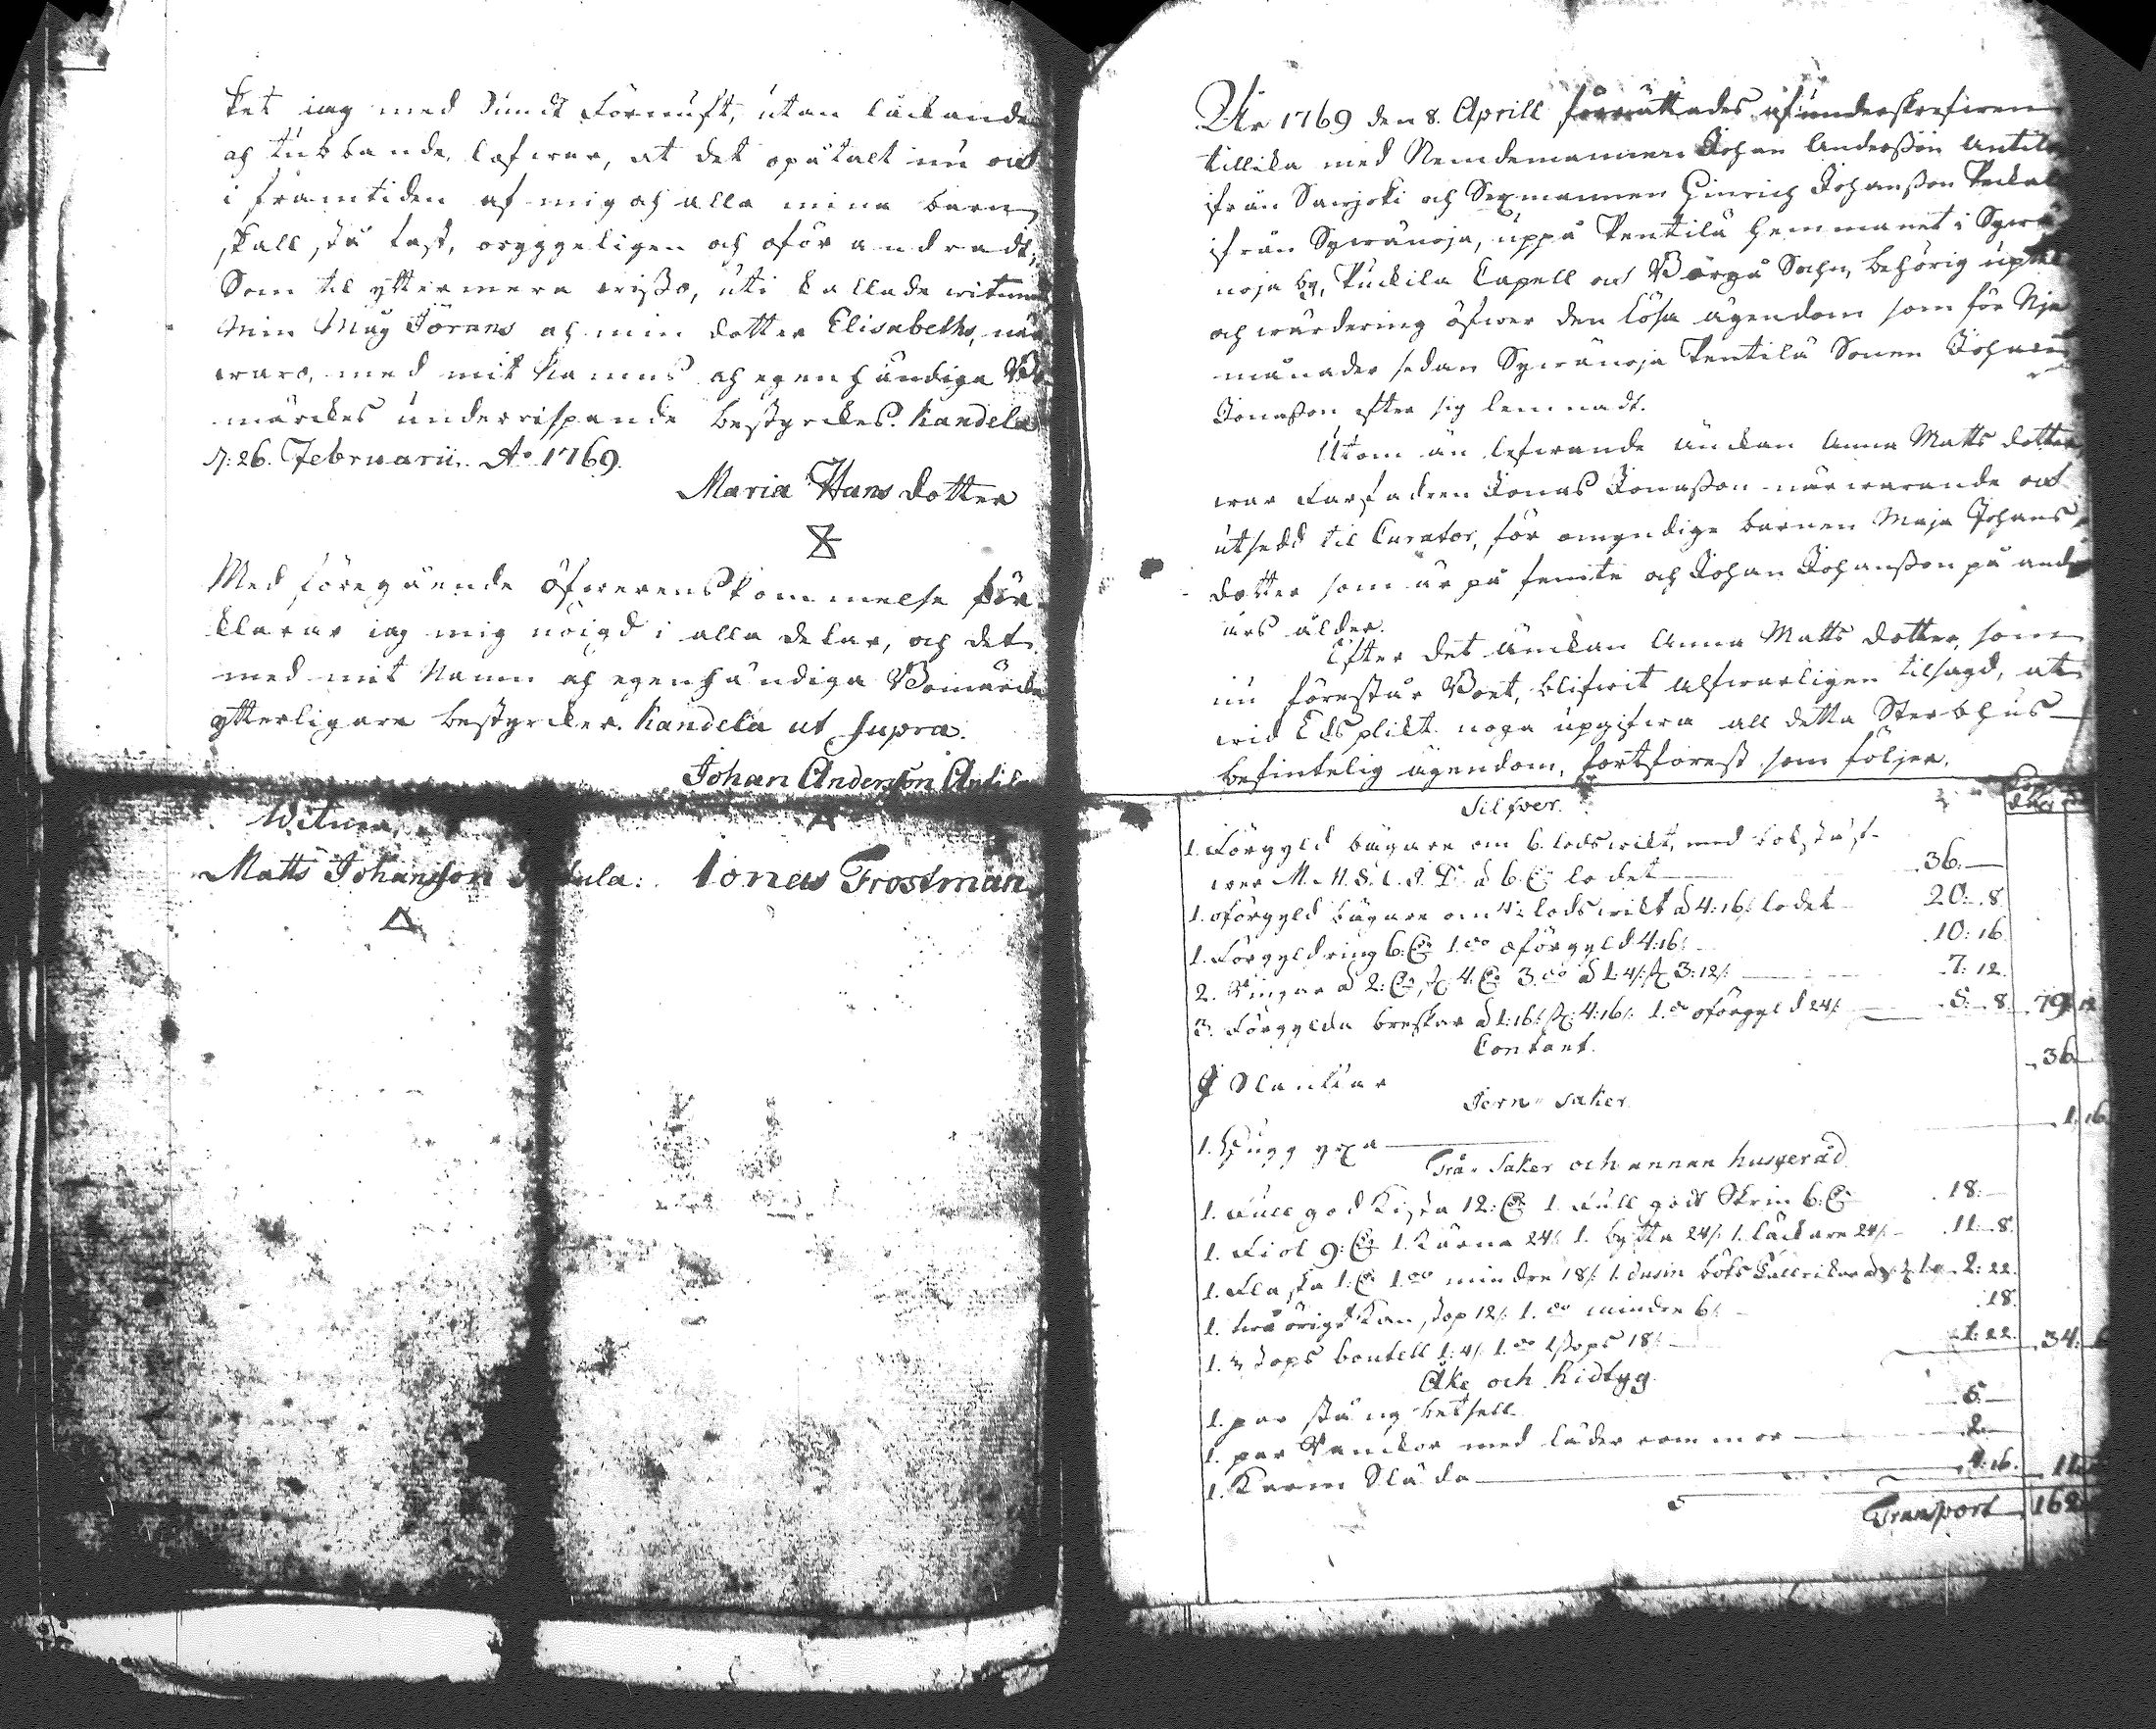 ket iag med sundt Förnuft, utan låckande
och tubbande, lofwar, at det opåtalt nu och
i framtiden af mig och alla mina barn
skall stå fast, oryggeligen och oförandradt;
Som til yttermera wisso, uti kallade witnens
Min Måg Jörans och min dotter Elisabeths, när
waro, med mit Namns och egenhändiga Bo
märckes underrispande bestyrckes. Kandela
d: 26. Februarii. Ao 1769.
Maria Hans dotter
Med föregående öfwerenskommelse för-
klarar iag mig nöigd i alla delar, och det
med mit Namn och egenhändiga Bomärcke
ytterligare bestyrcker. Kandela ut supra.
Johan Andersson Antila
Witna,
Matts Johansson Jonas Frostman
År 1769 den 8. Aprill förrättades af underskrefwen
tillika med Nemdemannen Johan Andersson Antila
ifrån Sawjoki och Sexmannen Hinrich Johansson
ifrån Sywänoja, uppå Pentilä Hemmanet i Sywä
noja by, Puckila Capell och Borgå Sochn, behörig uptek
och wärdering öfwer den lösa ägendom som för Nije
månader sedan Sywänoja Pentilä Sonen Johan
Jonasson efter sig lemnadt.
Utom än lefwande Enckan Anna Matts dotter
war Farfadren Jonas Jonasson närwarande och
utsedd til Curator, för omyndige barnen Maja Johans
dotter som är på femte och Johan Johansson på andra
års ålder.
Efter det Enckan Anna Matts dotter, som
nu förestår Boet, blifwit alfwarligen tilsagd, at
wid Edsplikt noga upgifwa all detta Sterbhus
befintelig ägendom, fortforest som följer.
Silfver.
1. Förgyld bägare om 6. lods wikt, med bokstäf-
wer M. M. S. C. I. D. à 6. lodet 36.—
1. oförgyld bägare om 4½ lods wikt à 4:16/ lodet 20:8.
1. Förgyld ring 6: 1. do oförgyld 4:16/. 10:16.
2. Ringar à 2: 4: 3 do à 1:4/. 3:12/. 7:12.
3. Förgylda breskor à 1:16/. 4:16/. 1. do oförgyld 24/. 5:8. 79:12
Contant.
Slantar 36.—
Jern-saker
1. Hugg yxa 1:16
Trä-saker och annan husgeråd
1. Full god Kista 12: 1. Full godt Skrin 6: 18.—
1. Fiol 9: 1. Kärna 24/. 1. bytta 24/. 1. 24/. 11:8.
1. Flaska 1: 1. do mindre 18/. 1. dusin boks Tallrikar 2:22.
1. Kan, stop 12/. 1. do mindre 6/. 18.
1. 3 stops boutell 1:4/. 1. do 1 stops 18/. 1:22. 34:
Åke och Ridtyg.
1. par stång betsell 5.—
1. par med läder 2.—
1. Karm Släda 4:16. 11:
Transport 162